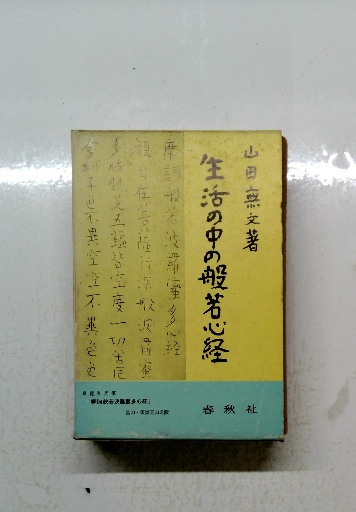 山田無文著
生活の中の般若心経
摩訶般若波羅蜜多心経
観自在菩薩行深般波羅蜜
多時照見五蘊皆空度一切苦厄
舎利子色不異空空不異色色
春秋社